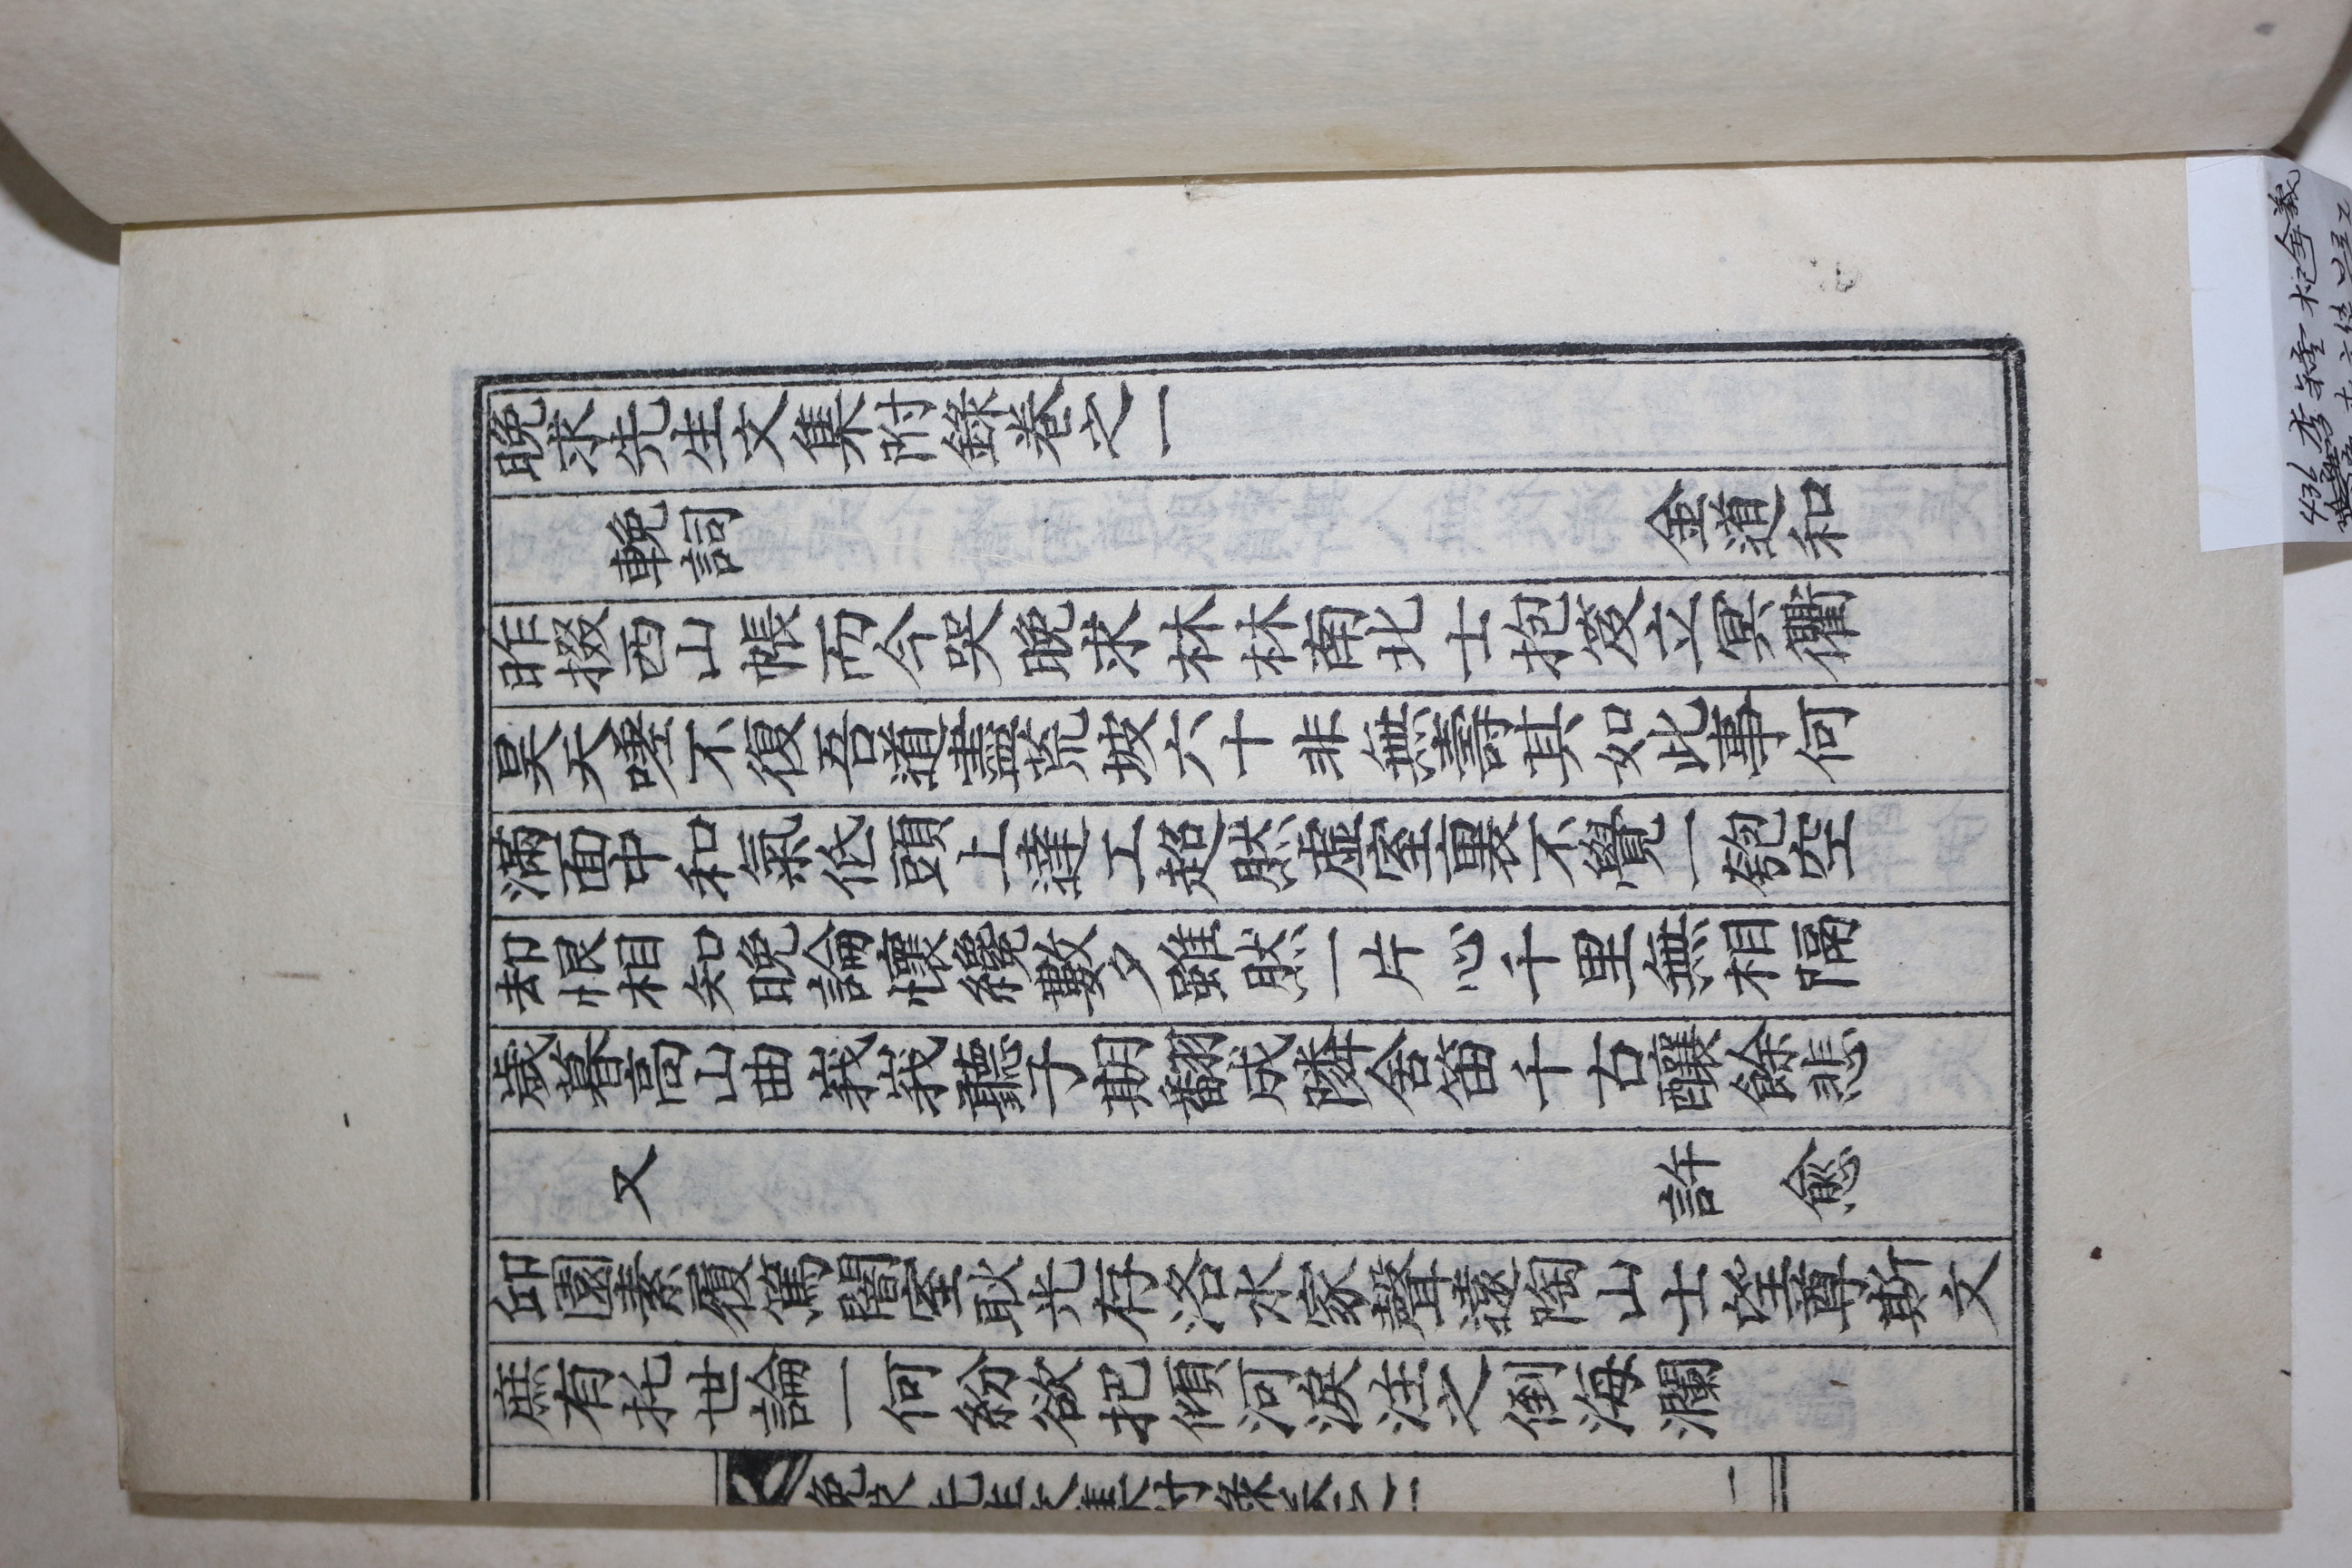 晩求先生文集附錄卷之一
輓詞 金道和
昨掇西山帳而今哭晩求林林南北士抱笈立冥衢
昊天噬不復吾道盡荒坡六十非無壽其如此事何
滿面中和氣低頭上達工超然虛室裏不覺一瓢空
却恨相知晩論懷纔數夕雖然一片心千里無相隔
歲暮高山曲峩峩聽子期飜成隣舍笛千古釀餘悲
又 許愈
邱園素履篤闇室耿光存洛水家聲遠陶山士望尊斯文
庶有托世論一何紛欲把傾河淚注之倒海瀾
晩求先生文集附錄卷之一 一
436